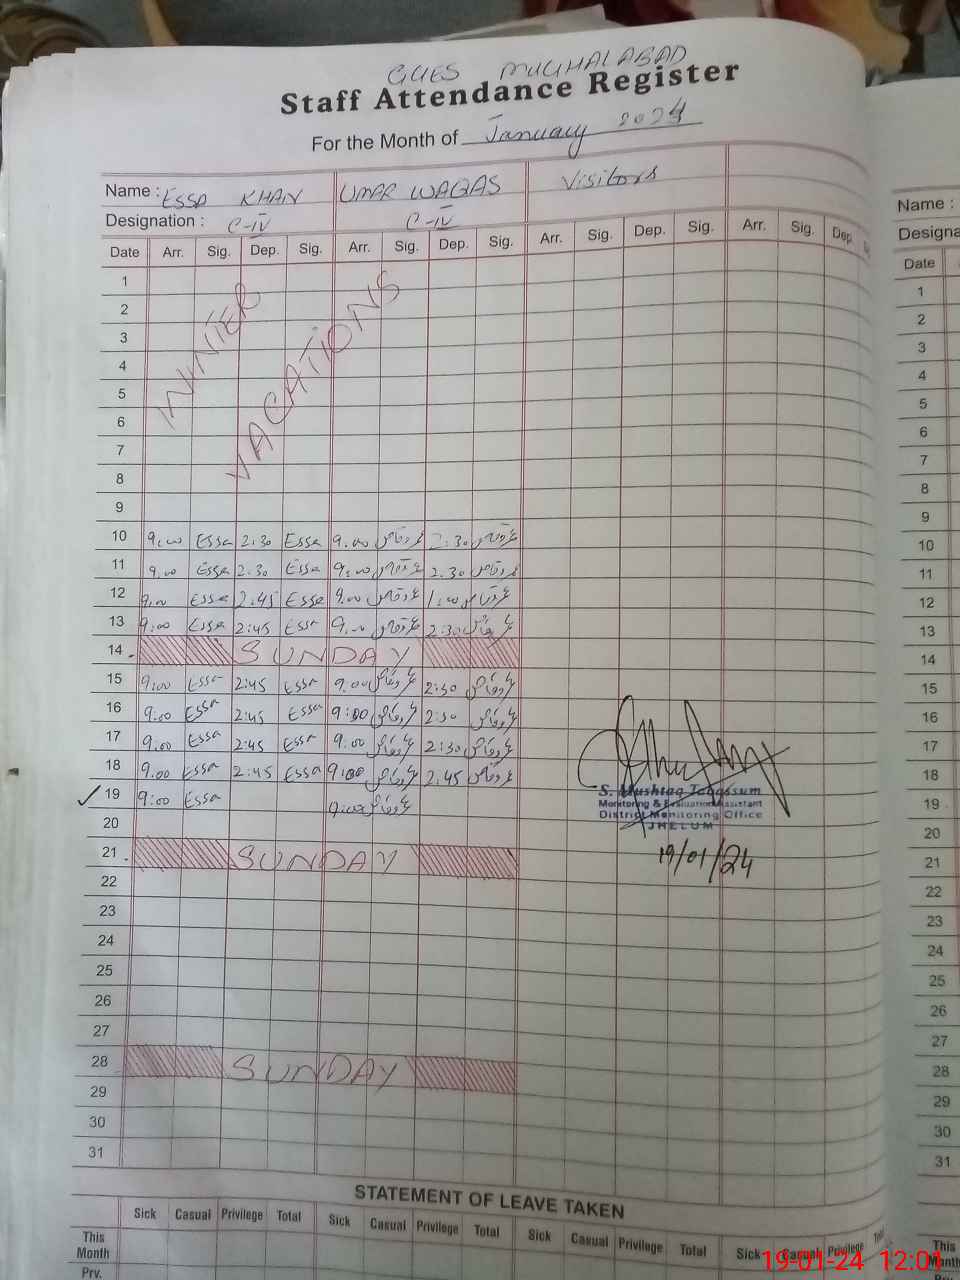 GGES MUGHALABAD
Staff Attendance Register
For the Month of January 2024
Name : ESSA KHAN UMAR WAQAS Visitors
Designation : C-IV C-IV
Date Arr. Sig. Dep. Sig. Arr. Sig. Dep. Sig. Arr. Sig. Dep. Sig. Arr. Sig. Dep.
1
2
3
4
5
6
7
8
9
WINTER
VACATIONS
10 9:00 Essa 2:30 Essa 9:00 عمروقاص 2:30 عمروقاص
11 9:00 Essa 2:30 Essa 9:00 عمروقاص 2:30 عمروقاص
12 9:00 Essa 2:45 Essa 9:00 عمروقاص 1:00 عمروقاص
13 9:00 Essa 2:45 Essa 9:00 عمروقاص 2:30 عمروقاص
14 SUNDAY
15 9:00 Essa 2:45 Essa 9:00 عمروقاص 2:30 عمروقاص
16 9:00 Essa 2:45 Essa 9:00 عمروقاص 2:30 عمروقاص
17 9:00 Essa 2:45 Essa 9:00 عمروقاص 2:30 عمروقاص
18 9:00 Essa 2:45 Essa 9:00 عمروقاص 2:45 عمروقاص
19 9:00 Essa 9:00 عمروقاص
S. Mushtaq Tabassum
Monitoring & Evaluation Assistant
District Monitoring Office
JHELUM
19/01/24
20
21 SUNDAY
22
23
24
25
26
27
28 SUNDAY
29
30
31
STATEMENT OF LEAVE TAKEN
Sick Casual Privilege Total Sick Casual Privilege Total Sick Casual Privilege Total Sick Casual Privilege Total
This Month
Prv.
Name :
Designa
Date
1
2
3
4
5
6
7
8
9
10
11
12
13
14
15
16
17
18
19
20
21
22
23
24
25
26
27
28
29
30
31
This
Month
19-01-24 12:01